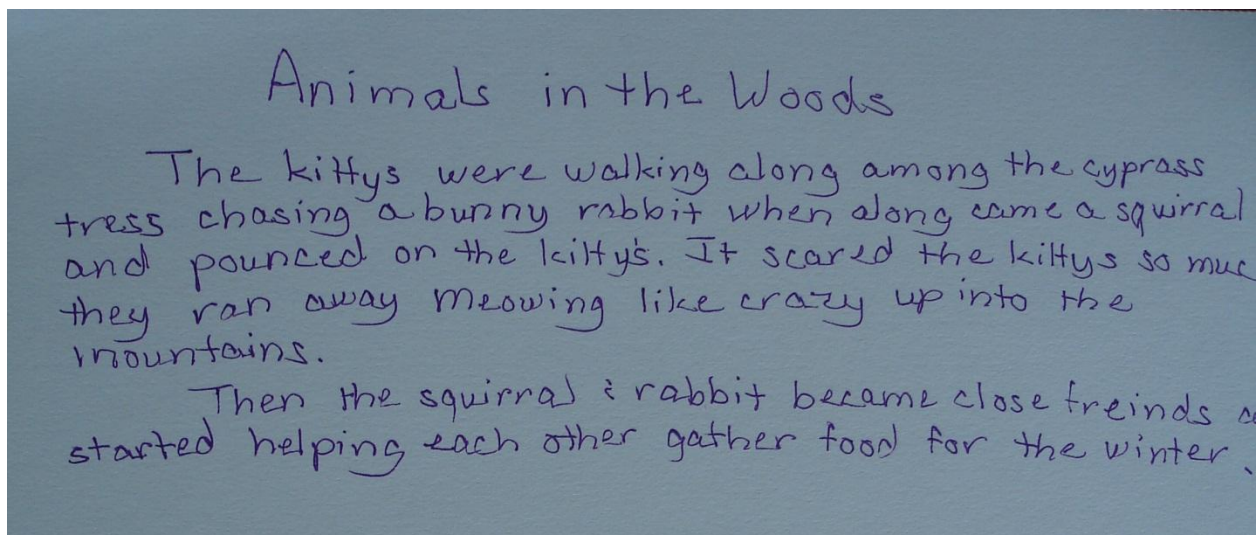 Animals in the Woods
The kittys were walking along among the cyprass
tress chasing a bunny rabbit when along came a squirral
and pounced on the kitty's. It scared the kittys so muc
they ran away meowing like crazy up into the
mountains.
Then the squirral & rabbit became close freinds a
started helping each other gather food for the winter.